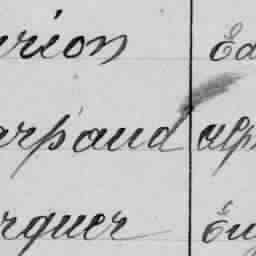 urion Éd
arpaud Alph
rquer Eug